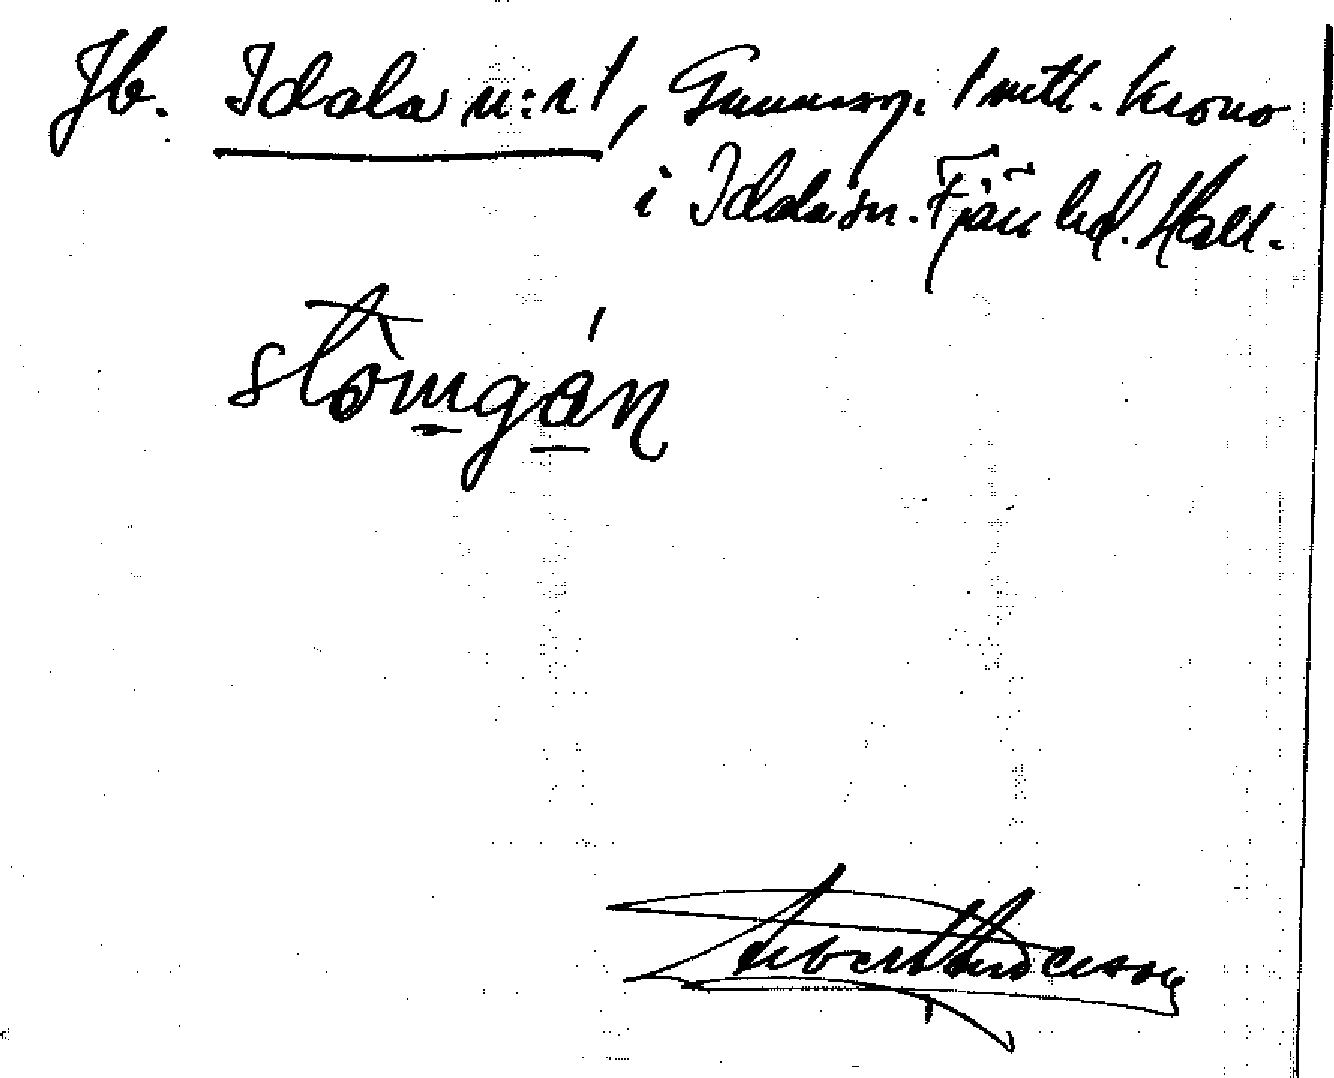 Jb. Idala n:r 1, Gunnarp. 1 mtl. krono
i Idala sn. Fjäre hd. Hall.
stòmgán
Albert Anderson